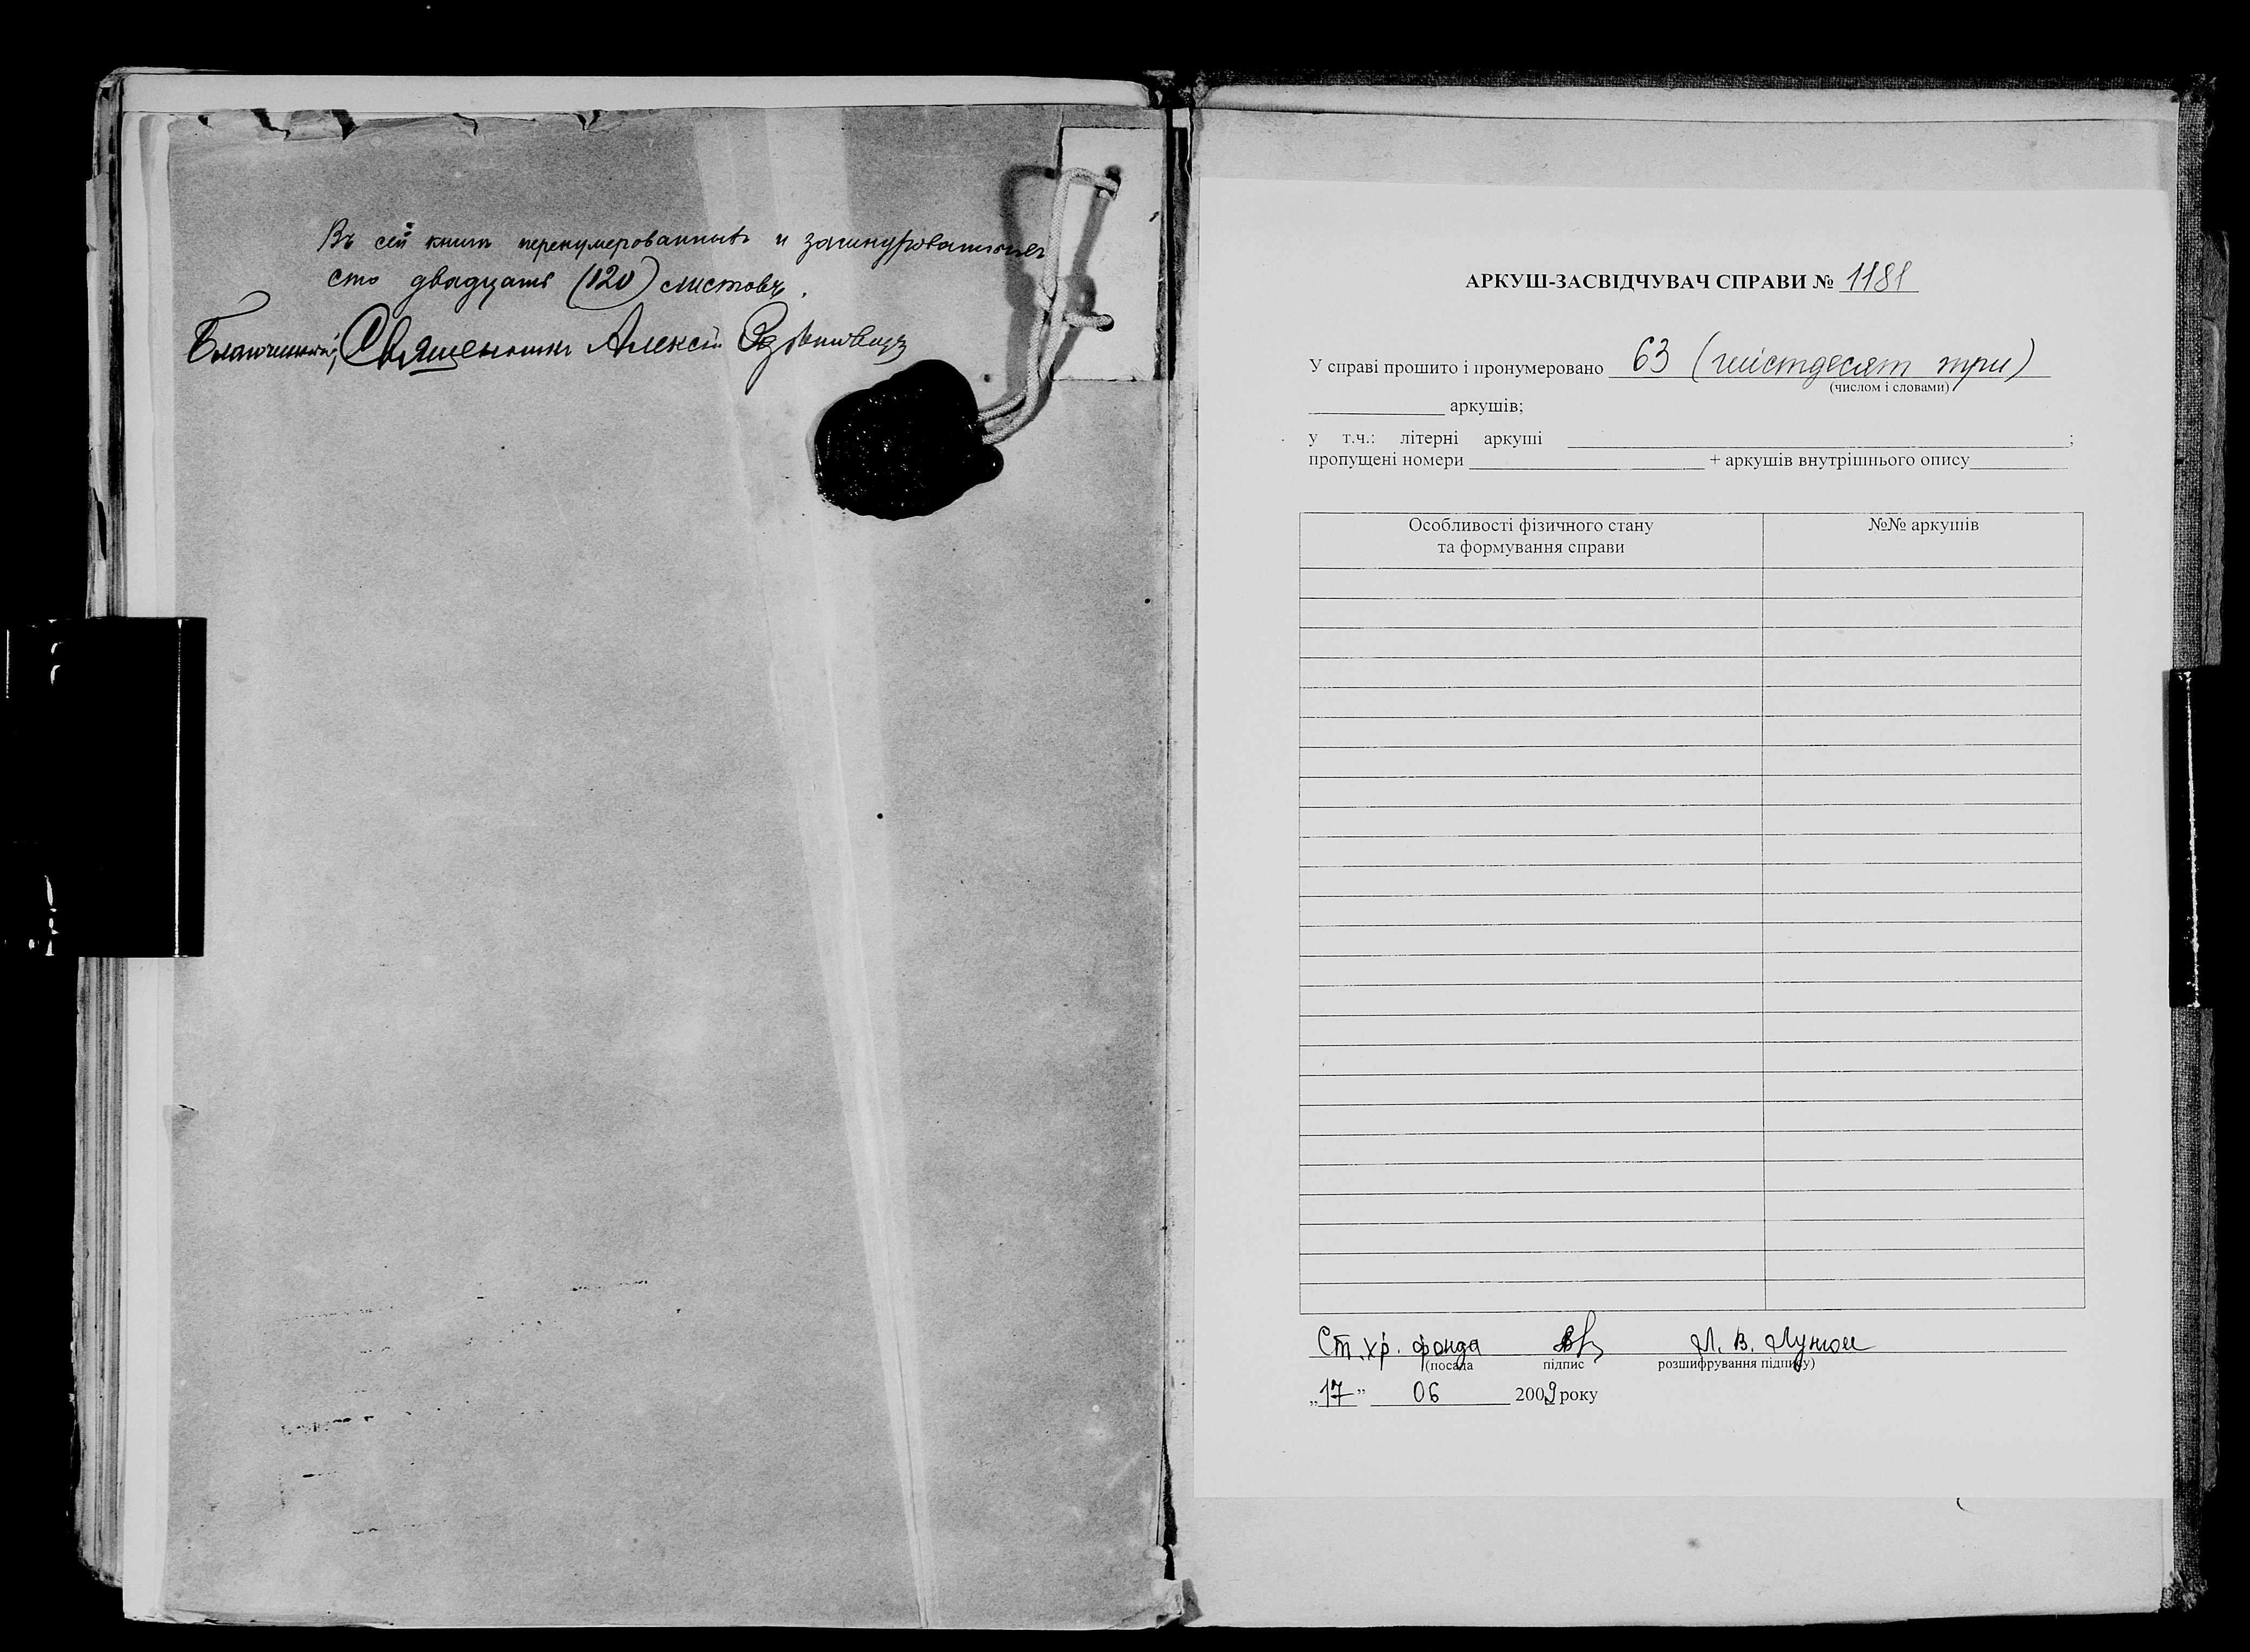 Въ сей книгѣ перенумерованныхъ и зашнурованныхъ
сто двадцать (120) листовъ.
Благочинный, Священникъ Алексій
АРКУШ-ЗАСВІДЧУВАЧ СПРАВИ № 1181
У справі прошито і пронумеровано 63 (шістдесят три)
(числом і словами)
аркушів;
у т.ч.: літерні аркуші ;
пропущені номери + аркушів внутрішнього опису
Особливості фізичного стану та формування справи №№ аркушів
Ст. хр. фонда Л. В.
(посада підпис розшифрування підпису)
„17” 06 2009 року